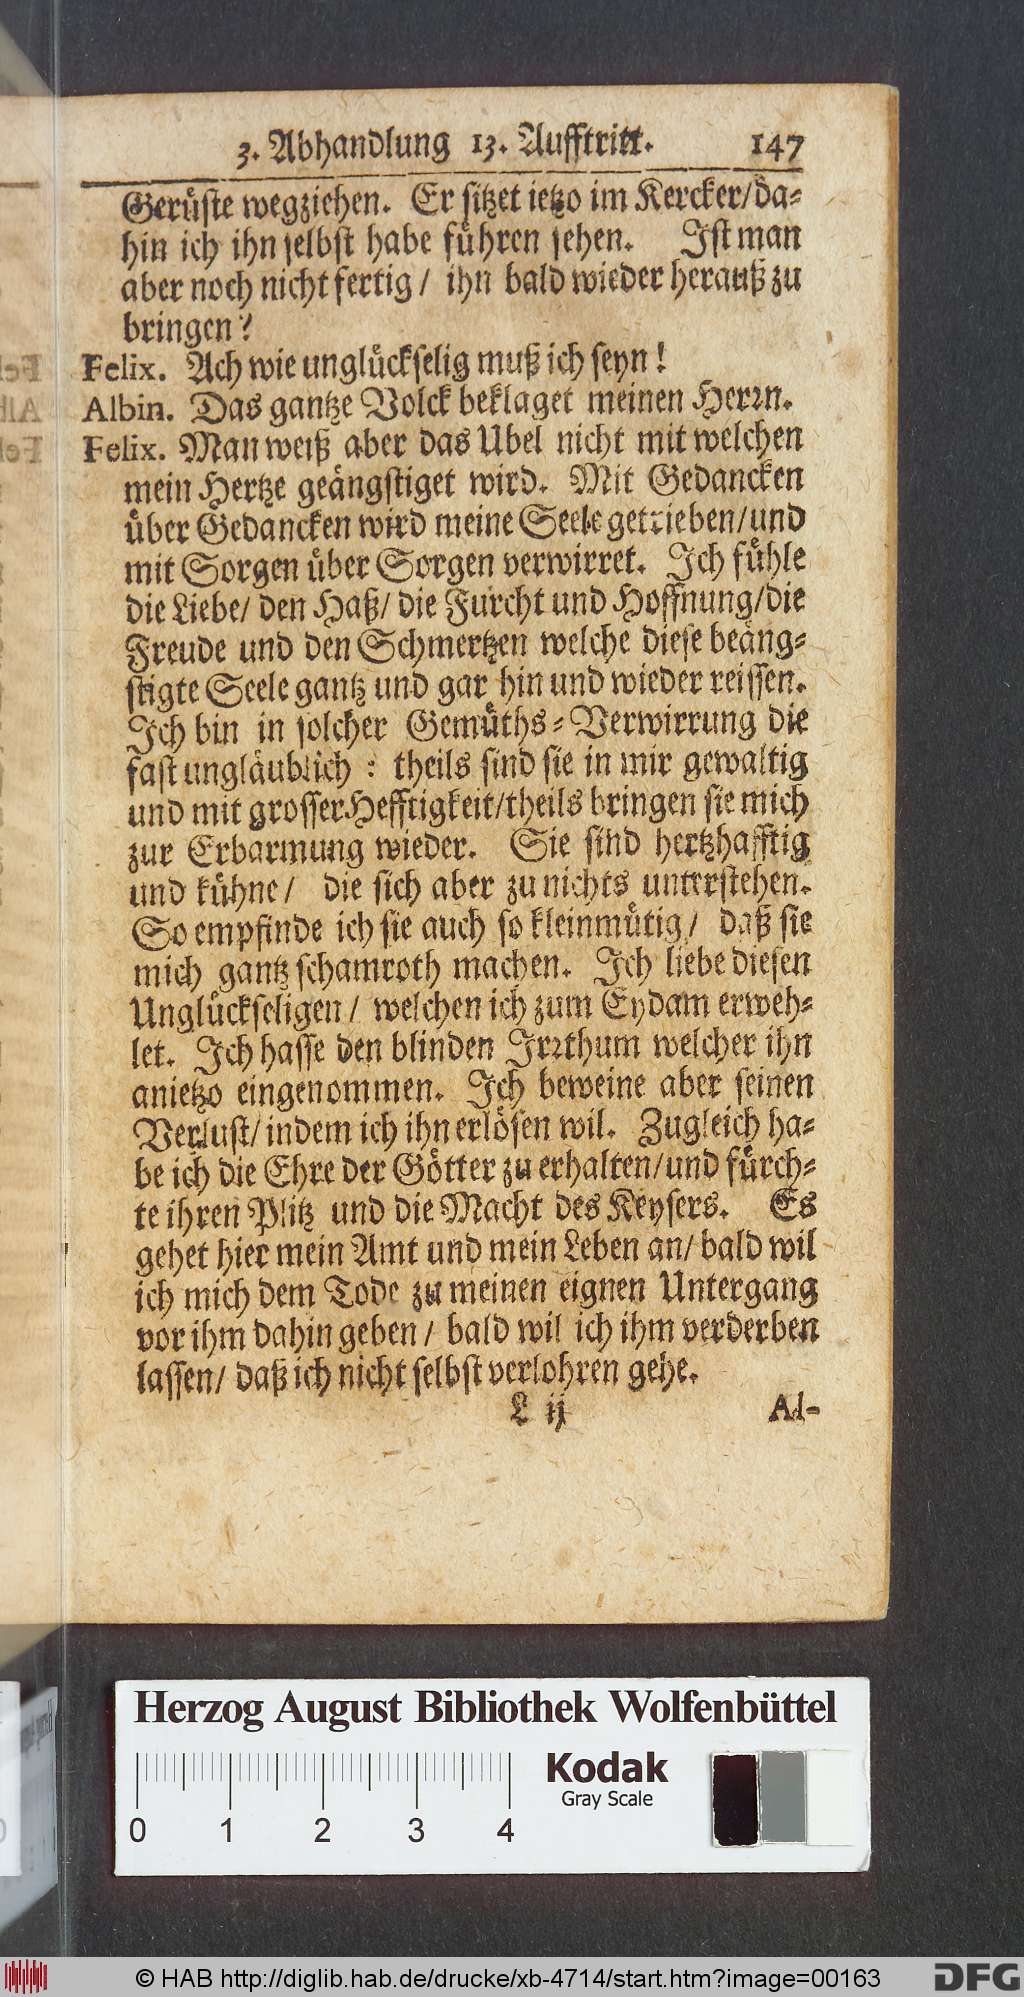 3. Abhandlung 13. Aufftritt. 147
Gerüste wegziehen. Er sitzet ietzo im Kercker/da-
hin ich ihn selbst habe führen sehen. Ist man
aber noch nicht fertig / ihn bald wieder herauß zu
bringen?
Felix. Ach wie unglückselig muß ich seyn!
Albin. Das gantze Volck beklaget meinen Herrn.
Felix. Man weiß aber das Ubel nicht mit welchen
mein Hertze geängstiget wird. Mit Gedancken
über Gedancken wird meine Seele getrieben/und
mit Sorgen über Sorgen verwirret. Ich fühle
die Liebe/ den Haß/ die Furcht und Hoffnung/die
Freude und den Schmertzen welche diese beäng-
stigte Seele gantz und gar hin und wieder reissen.
Ich bin in solcher Gemüths-Verwirrung die
fast ungläublich : theils sind sie in mir gewaltig
und mit grosser Hefftigkeit/theils bringen sie mich
zur Erbarmung wieder. Sie sind hertzhafftig
und kühne / die sich aber zu nichts unterstehen.
So empfinde ich sie auch so kleinmütig / daß sie
mich gantz schamroth machen. Ich liebe diesen
Unglückseligen / welchen ich zum Eydam erweh-
let. Ich hasse den blinden Irrthum welcher ihn
anietzo eingenommen. Ich beweine aber seinen
Verlust/ indem ich ihn erlösen wil. Zugleich ha-
be ich die Ehre der Götter zu erhalten/und fürch-
te ihren Plitz und die Macht des Keysers. Es
gehet hier mein Amt und mein Leben an/ bald wil
ich mich dem Tode zu meinen eignen Untergang
vor ihm dahin geben / bald wil ich ihm verderben
lassen/ daß ich nicht selbst verlohren gehe.
L ij Al-
Herzog August Bibliothek Wolfenbüttel
Kodak
Gray Scale
0 1 2 3 4
© HAB http://diglib.hab.de/drucke/xb-4714/start.htm?image=00163
DFG